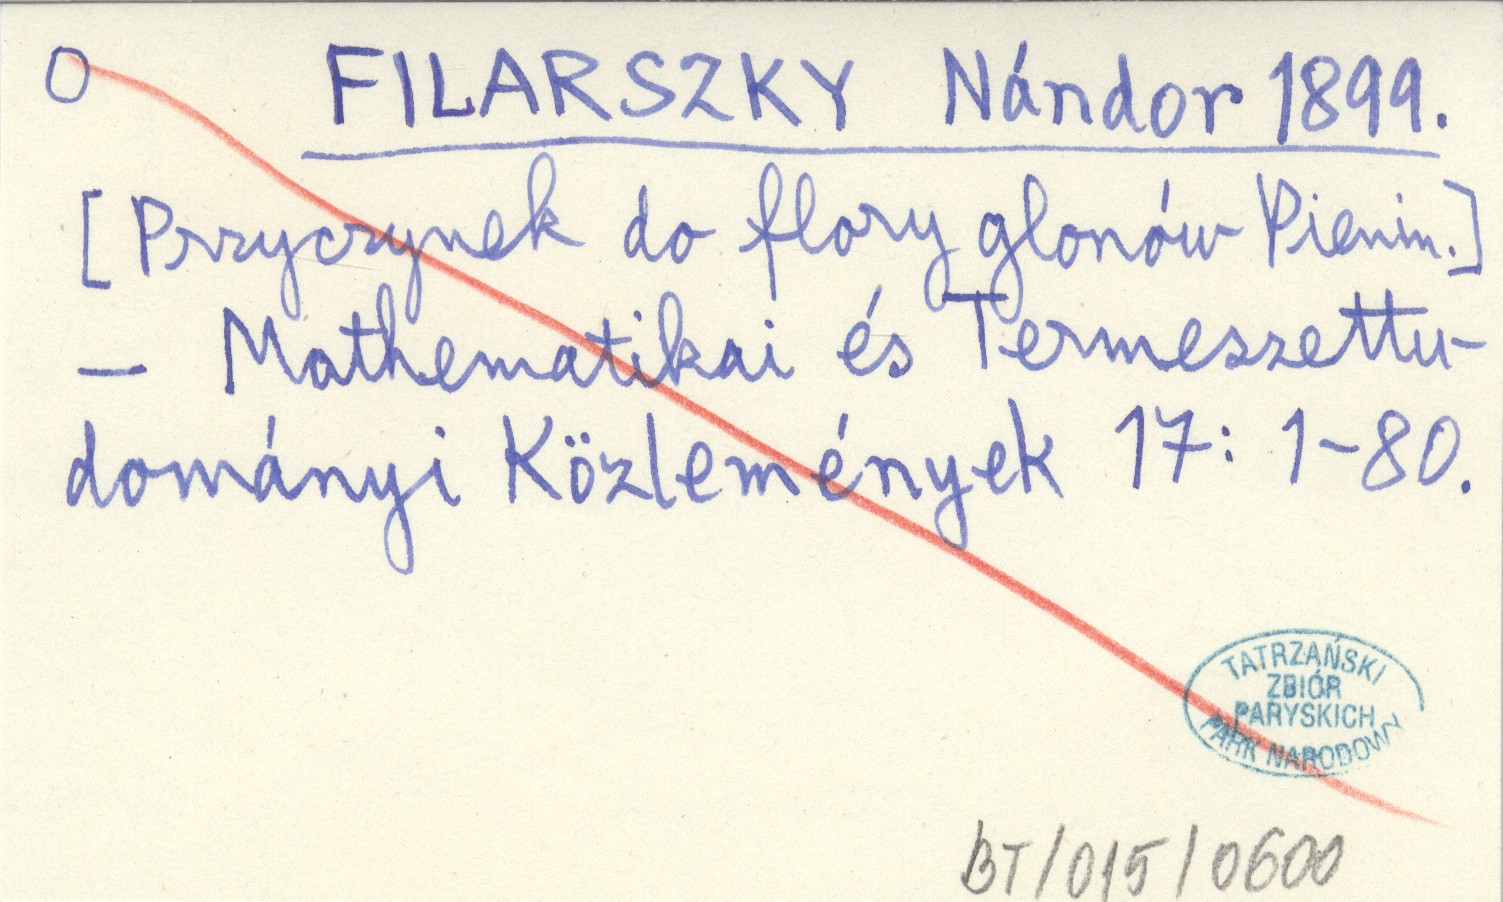 O FILARSZKY Nándor 1899.
[Przyczynek do flory glonów Pienin.]
– Mathematikai és Termeszettu-
dományi Közlemények 17: 1–80.
TATRZAŃSKI
ZBIÓR
PARYSKICH
PARK NARODOWY
BT/015/0600